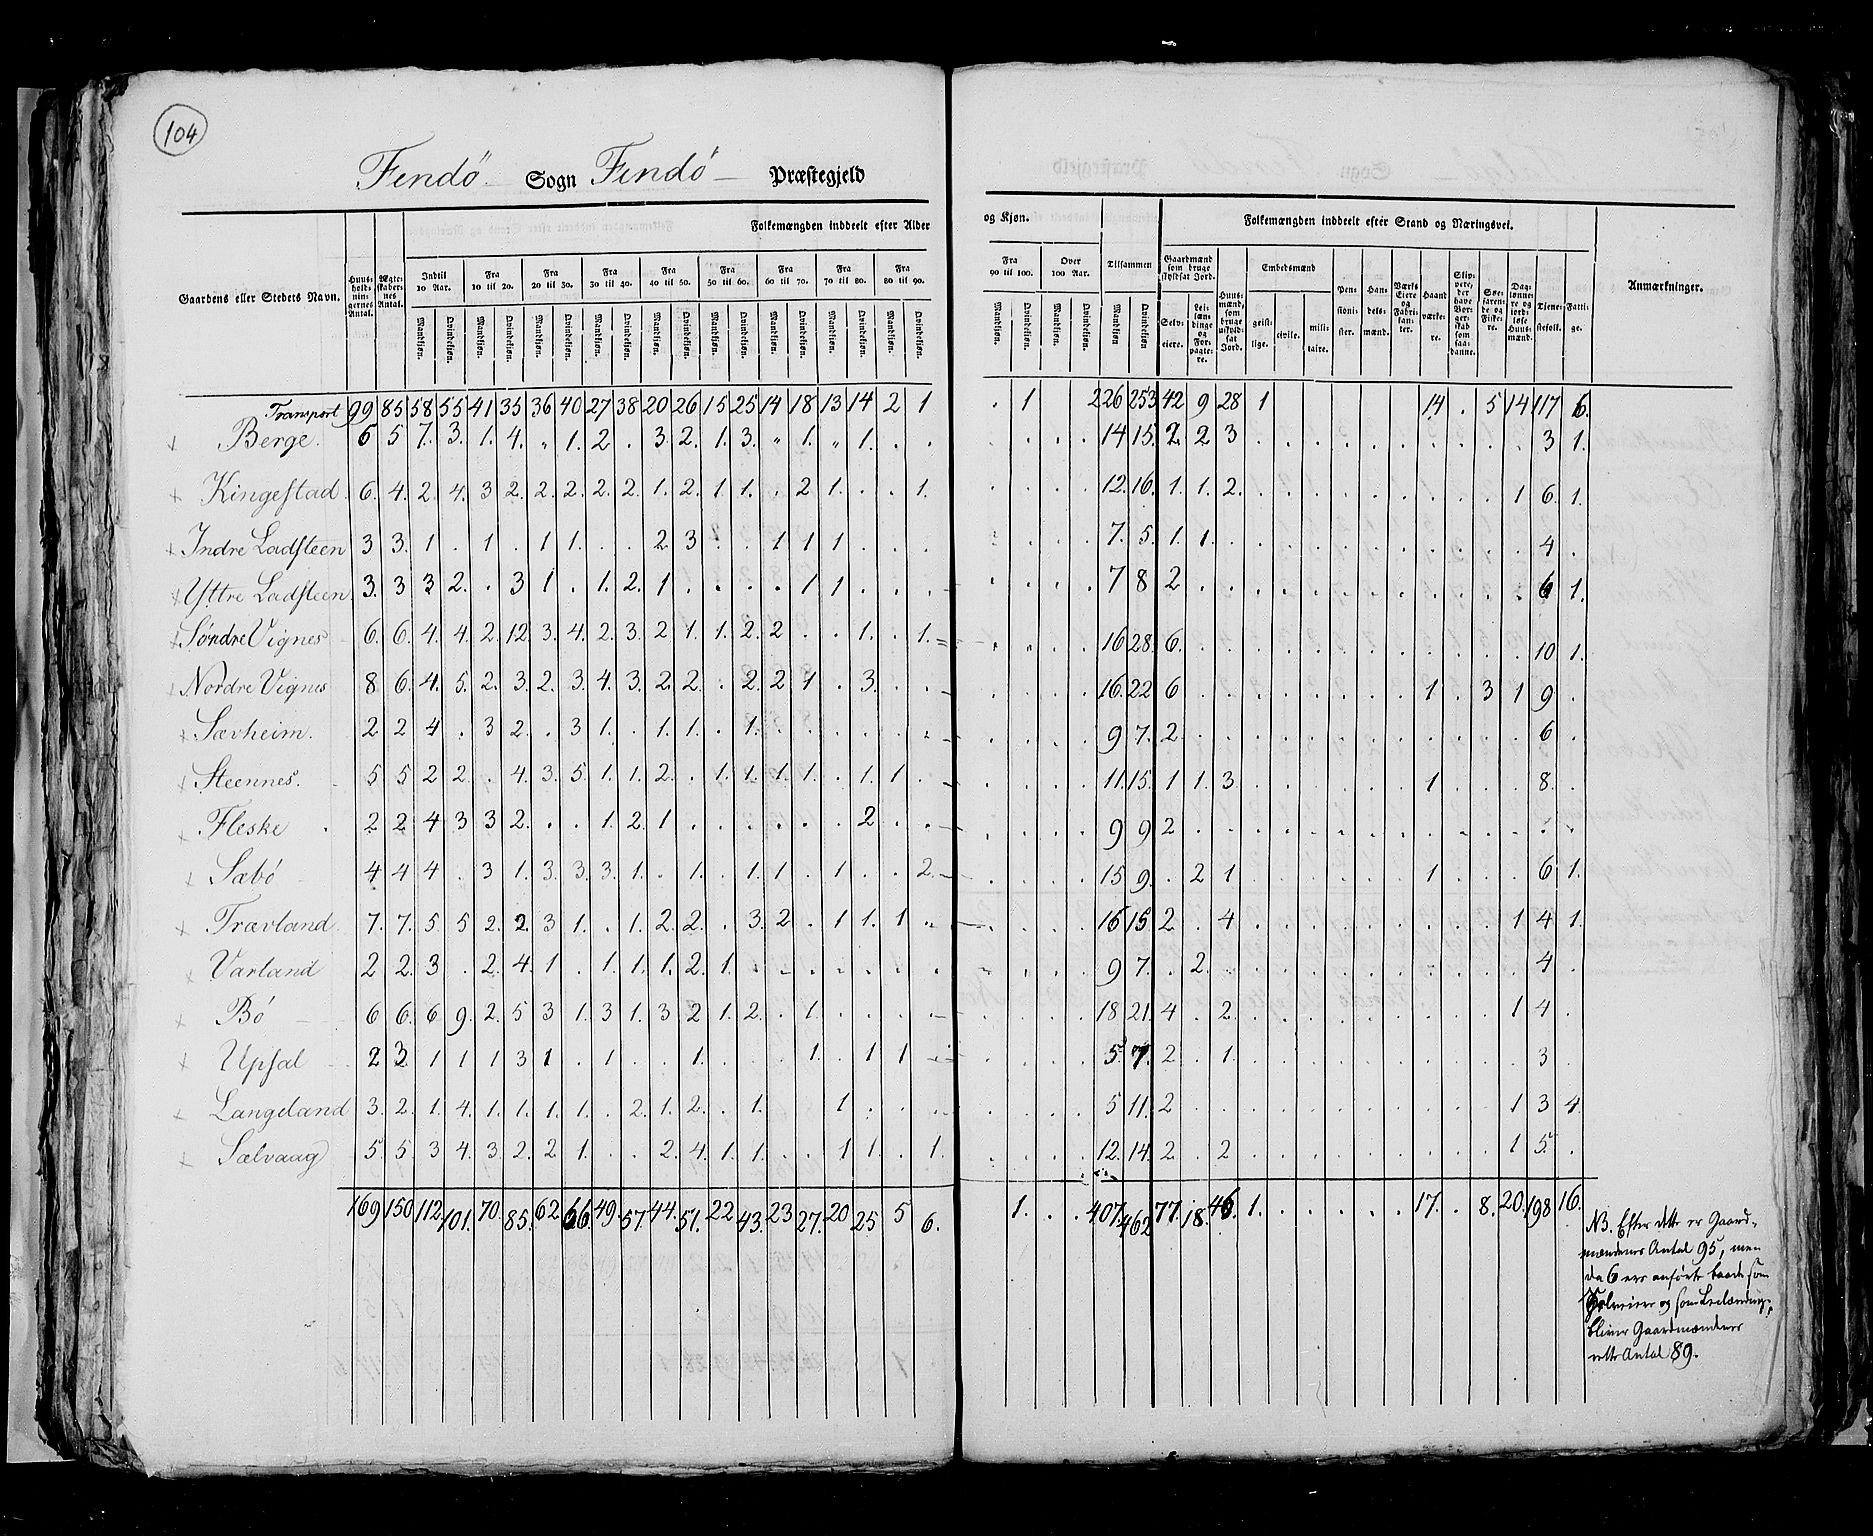 104
Findö Sogn Findö Præstegjeld
Folkemængden inddeelt efter Alder og Kjøn. Folkemængden inddeelt efter Stand og Næringsvei.
Gaardens eller Stedets Navn. Huus-holdnin-gernes Antal. Ægte-skaber-nes Antal. Indtil 10 Aar. Fra 10 til 20. Fra 20 til 30. Fra 30 til 40. Fra 40 til 50. Fra 50 til 60. Fra 60 til 70. Fra 70 til 80. Fra 80 til 90. Fra 90 til 100. Over 100 Aar. Tilsammen Gaardmænd som bruge skyldsat Jord. Huus-mænd, som bruge uskyld-sat Jord. Embedsmænd Pen-sioni-ster. Han-dels-mænd. Værks Eiere og Fabri-kan-ter. Haand værke-re. Søe-farende og Fiske-re. Dag-lønne-re og jord-løse Huus-mænd. Tjene-stefolk. Fatti-ge. Anmærkninger.
Mandkjøn. Qvindekjøn. Selv-eiere. Lei-læn-dinge og For-pagte-re. geist-lige. civile. mili-taire.
Transport 99 85 58 55 41 35 36 40 27 38 20 26 15 25 14 18 13 14 2 1 . 1 . . 226 253 42 9 28 1 14 . 5 14 117 6.
Berge. 6 5 7. 3. 1. 4. " 1. 2 . 3. 2. 1. 3. " 1. " 1. . . . . . . 14 15. 2. 2 3 . . . . . . . . . . 3 1.
Kingestad. 6. 4. 2. 4. 3 2. 2. 2. 2. 2. 1. 2. 1 1. . 2 1. . . 1. . . . . 12. 16. 1. 1. 2. . . . . . . . . . 1 6. 1.
Indre Ladsteen 3 3. 1 . 1 . 1 1. . . 2 3 . . 1 1 1 . . . . . . . 7. 5. 1. 1. . . . . . . . . . . . 4 .
Yttre Ladsteen 3. 3 3 2. . 3 1 . 1. 2. 1 . . . . 1 1 . . . . . . . 7 8 2 . . . . . . . . . . . . 6 1.
Søndre Vignes 6. 6. 4. 4. 2. 12. 3. 4. 2. 3. 2 1. 1. 2. 2 . . 1. . 1. . . . . 16 28. 6. . . . . . . . . . . . . 10 1.
Nordre Vignes 8 6. 4. 5. 2. 3. 2. 3. 4. 3. 2. 2. . 2. 2 1 . 3. . . . . . . 16. 22 6 . . . . . . . . 1 . 3 1 9 .
Sævheim. 2 2 4 . 3 2. . 3 1. . 1. 1. . 1. . . . . . . . . . . 9 7. 2. . . . . . . . . . . . . 6 .
Steennes. 5 5 2 2. . 4. 3. 5 1. 1. 2. . 1. 1. 1. 1. . 1. 1 . . . . . 11. 15. 1 1. 3. . . . . . . 1 . . . 8. .
Fleske 2 2 4 3 3 2. . . 1. 2. 1 . . . . . . 2 . . . . . . 9 9 2 . . . . . . . . . . . . . .
Sæbö 4 4 4 . 3 1. 3. 3. 3. 1. . 1. . 1. 1. . 1 . . 2. . . . . 15 9. . 2 1 . . . . . . 1 . . . 6 1.
Trævland. 7. 7. 5. 5 2. 2. 3 1. . 1. 2. 2. . 3. 2. . 1 1. 1 . . . . . 16 15 2 . 4 . . . . . . . . . 1 4 1.
Varland 2 2. 3 . 2. 4. 1 . 1. 1. 1. 2. 1. . . . . . . . . . . . 9 7. . 2. . . . . . . . . . . . 4 .
Bö 6 6. 6 9. 2. 5 3 1. 3 1. 3 2 1. 2. . 1. . . . . . . . . 18 21. 4 . 2. . . . . . . . . . 1 4 .
Upsal 2 3 1 1 1 3 1 . 1 . . 1. . . . 1. . 1 1 . . . . . 5 7. 2 . 1. . . . . . . . . . . 3
Langeland 3. 2. 1. 4. 1. 1. 1. 1. . 2. 1. 2. . 1. . . 1 . . . . . . . 5 11. 2 . . . . . . . . . . . 1 3 4.
Sælvaag 5. 5. 3 4. 3. 2. 2 1. . . 2. 4. 1. 1. . . 1 1. . 1. . . . . 12. 14. 2 . 2 . . . . . . . . . 1 5. .
169 150 112 101. 70. 85. 62 66 49. 57. 44. 51. 22 43. 23 27. 20 25 5 6. 1. . . 407 462 77. 18. 46 1. . . . . . 17. . 8. 20. 198 16.
NB. Efter dette er Gaard-
mændenes Antal 95, men
da 6 ere anførte baade som
Selveier og som Leilænding,
bliver Gaardmændenes
rette Antal 89.